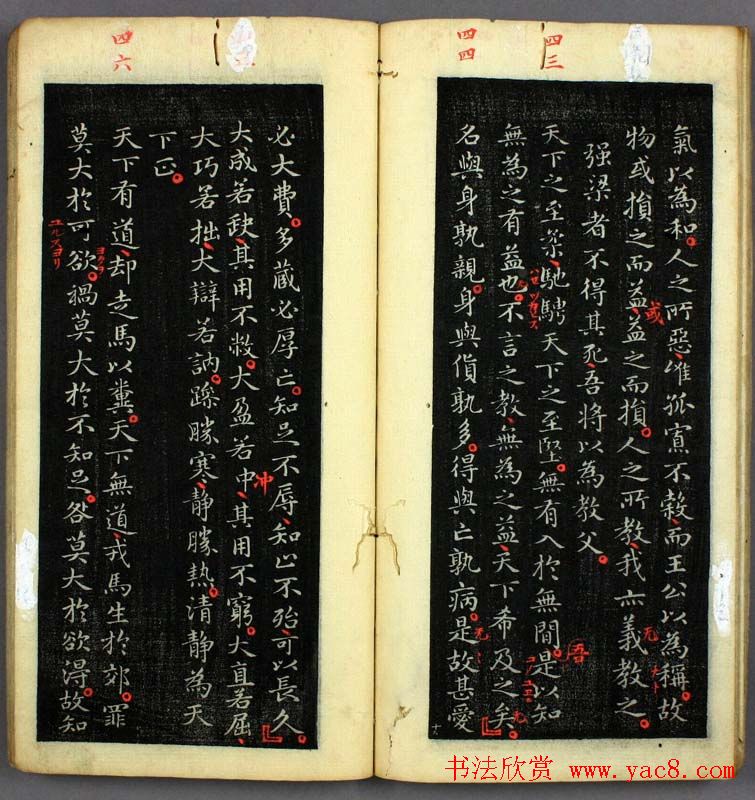 四三
氣以為和。人之所惡唯孤寡不穀而王公以為稱。故
物或損之而益益之而損。人之所教我亦義教之。
或
无
强梁者不得其死吾將以為教父。
天下之至柔馳騁天下之至堅。無有入於無間。是以知
吾
無為之有益也。不言之教無為之益天下希及之矣。
四四
名與身孰親。身與貨孰多。得與亡孰病。是故甚愛
无
十八
必大費。多蔵必厚亡。知足不辱知止不殆可以長久。
大成若缺其用不敝。大盈若中其用不窮。大直若屈
冲
大巧若拙大辯若訥。躁勝寒静勝熱。清静為天
下正。
四六
天下有道却走馬以糞。天下無道戎馬生於郊。罪
莫大於可欲。禍莫大於不知足。咎莫大於欲得。故知
书法欣赏 www.yac8.com